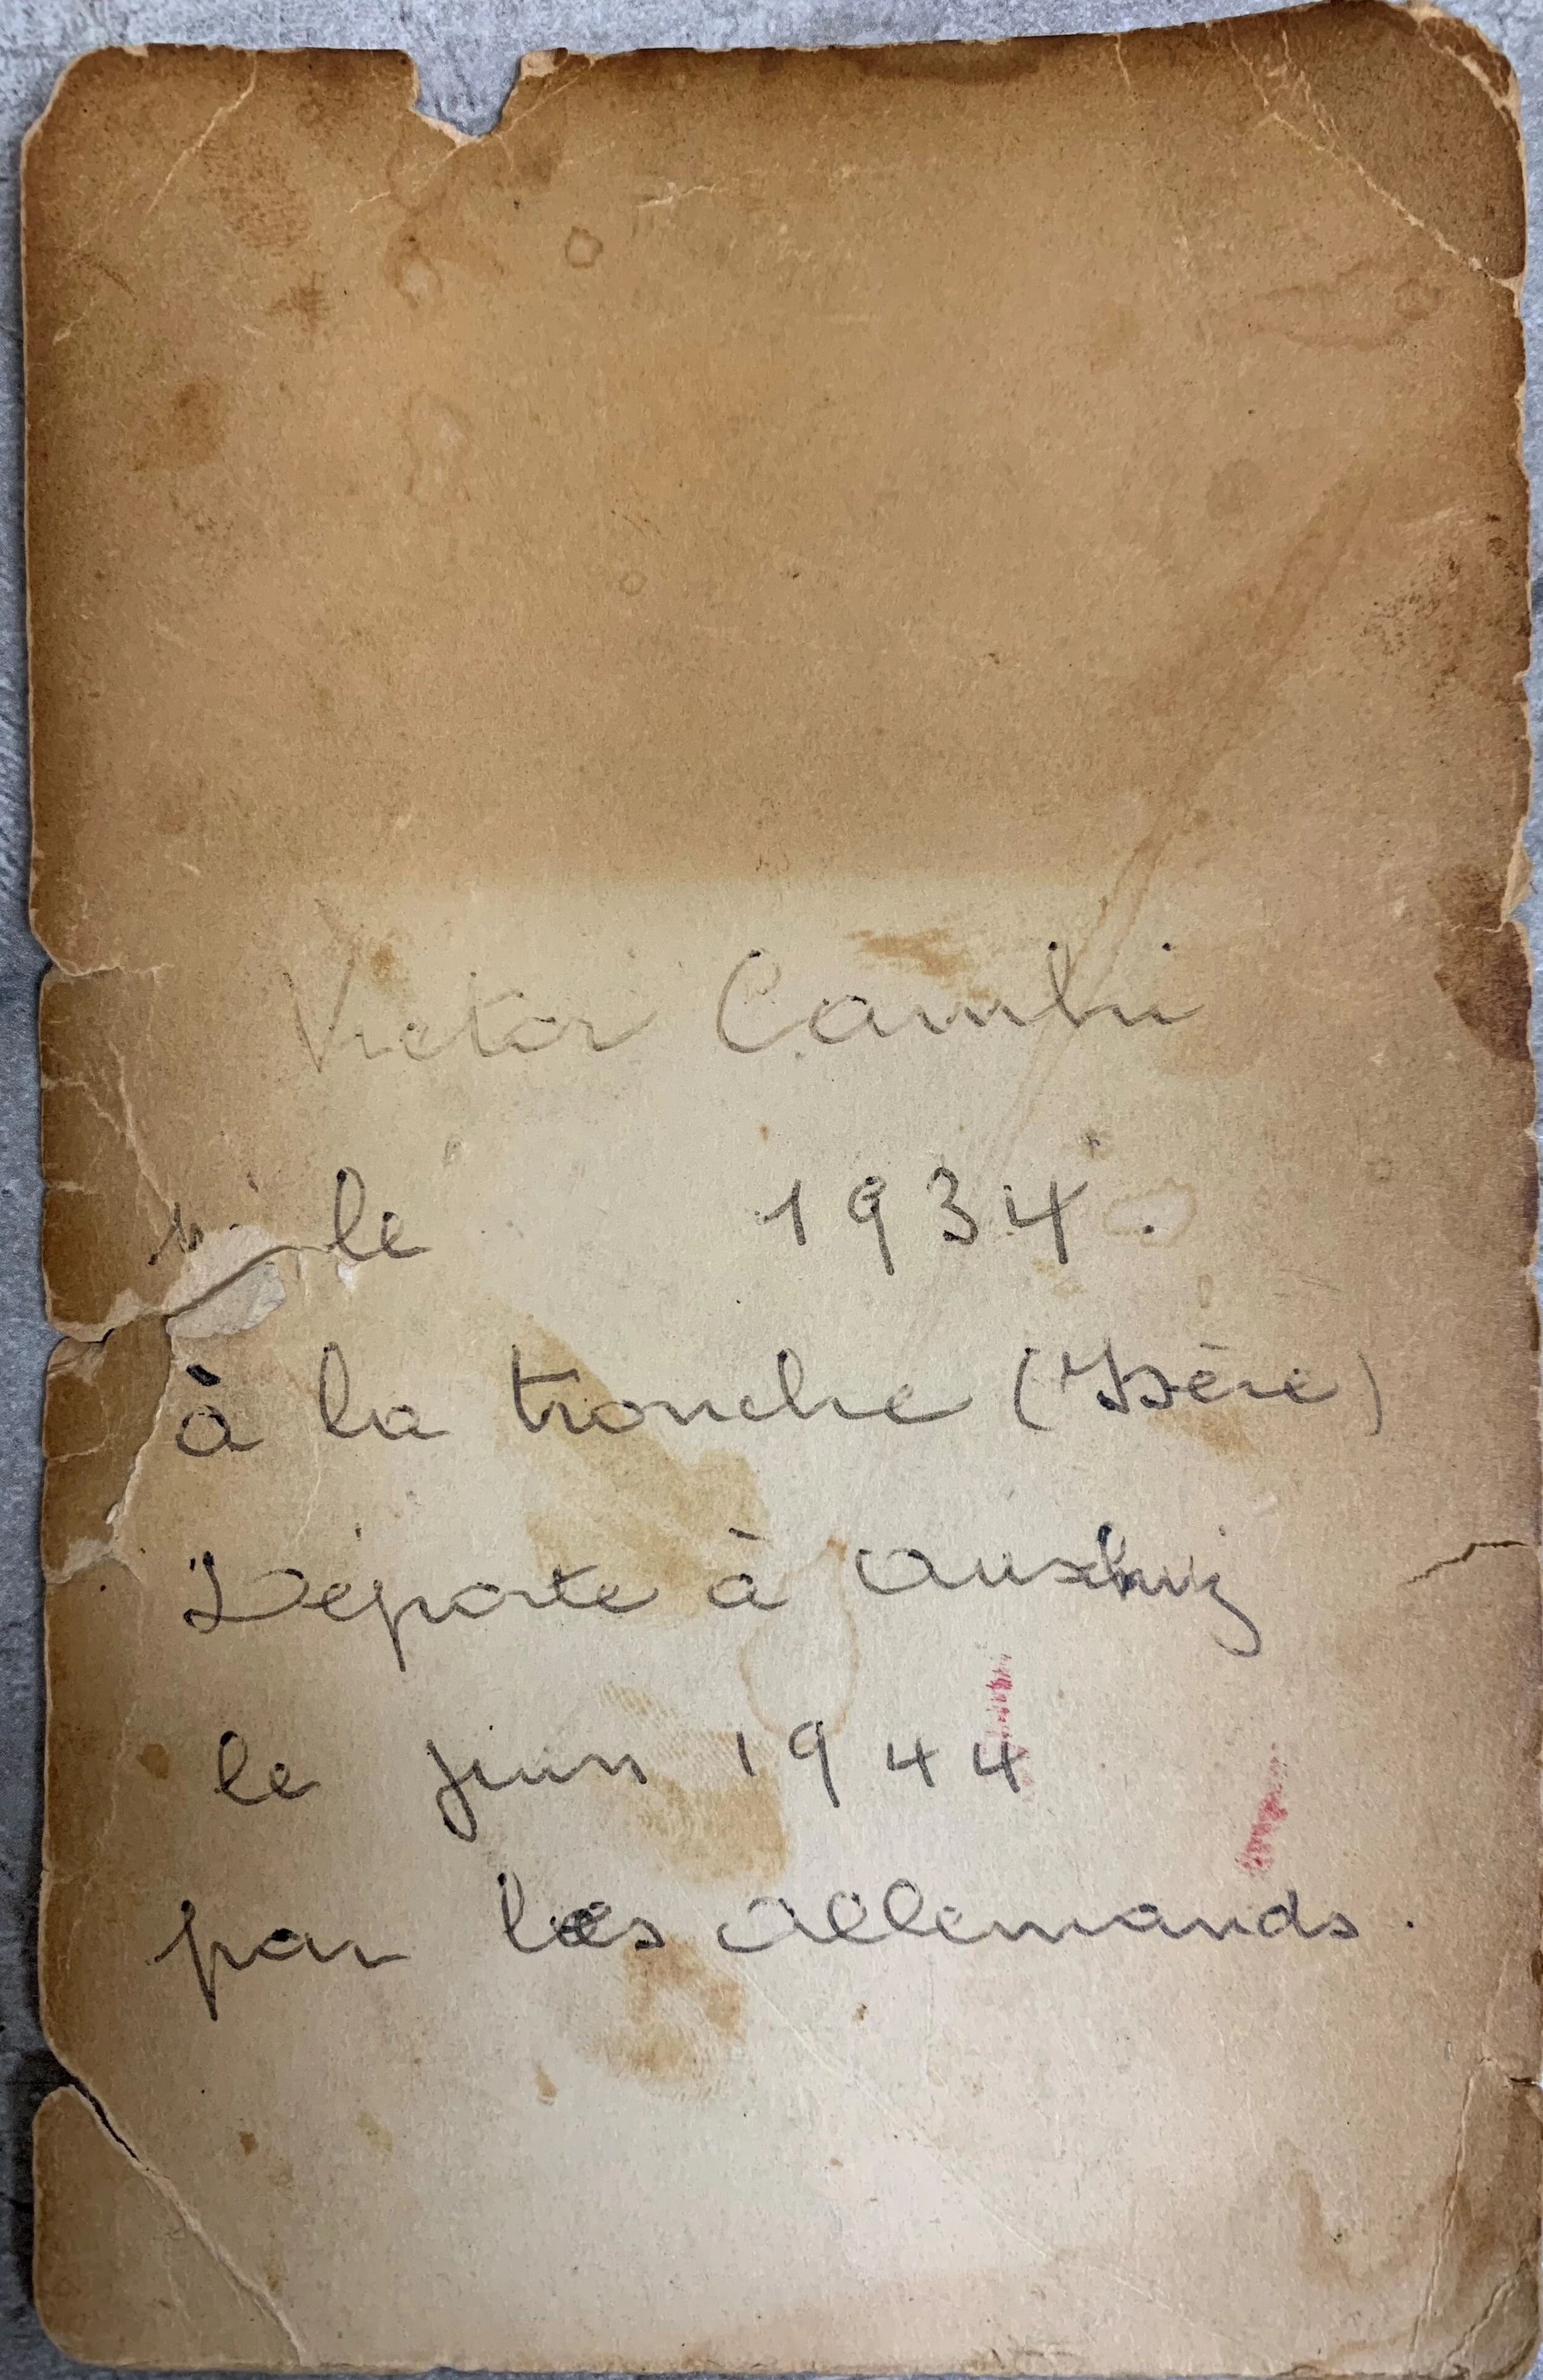 Victor Cambi
le 1934.
à la tronche (Isère)
Déporte à Auschwiz
le juin 1944
par les allemands.